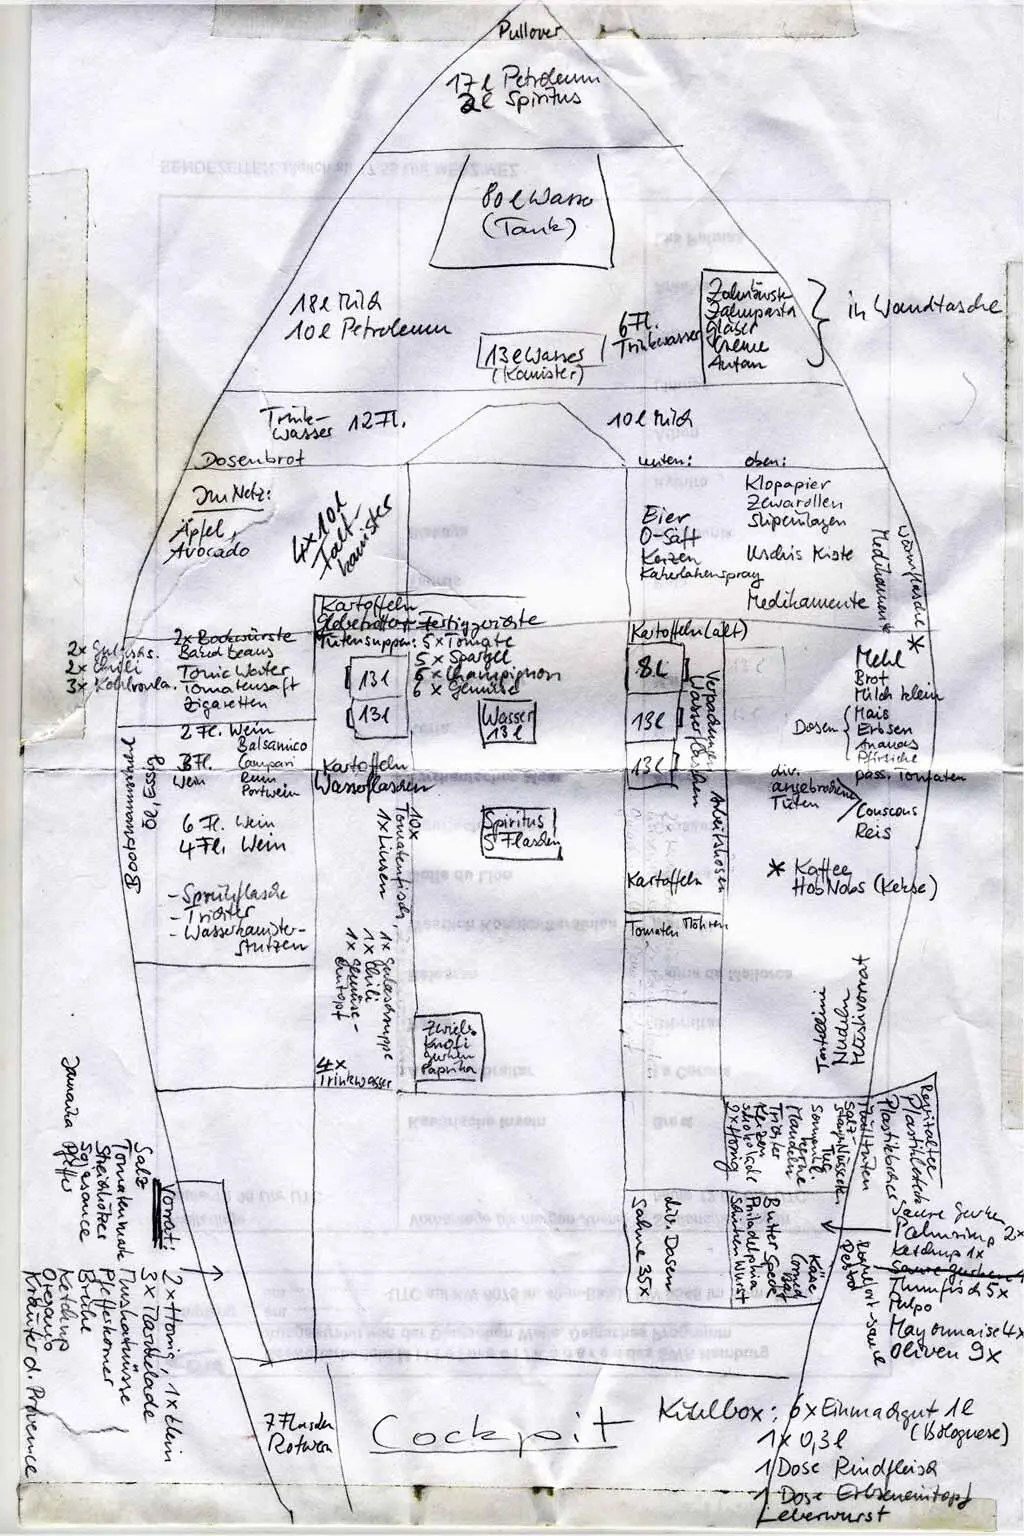 Pullover
17 l Petroleum
2 l Spiritus
80 l Wasser
(Tank)
18 l Milch
10 l Petroleum
13 l Wasser
(Kanister)
6 Fl.
Trinkwasser
Zahnbürste
Zahnpasta
Gläser
Creme
Autan
in Wandtasche
Trink-
wasser 12 Fl.
10 l Milch
Dosenbrot
unten:
oben:
Im Netz:
Äpfel,
Avocado
4x10 l
Falt-
kanister
Eier
O-Saft
Kerzen
Kakerlakenspray
Klopapier
Zewarollen
Slipeinlagen
Uschis Kiste
Medikamente
Medikamente
Wärmflasche
*
Kartoffeln
Globetrotter-Fertiggerichte
Tütensuppen: 5 x Tomate
5 x Spargel
5 x Champignon
6 x Gemüse
13 l
13 l
Kartoffeln
Wasserflaschen
2x Gulaschs.
2x Chili
3x Kohlroula.
2x Bockwürste
Baked beans
Tonic Water
Tomatensaft
Zigaretten
2 Fl. Wein
Balsamico
3 Fl.
Wein
Campari
Rum
Portwein
6 Fl. Wein
4 Fl. Wein
Öl, Essig
- Sprühflasche
- Trichter
- Wasserkanister-
stutzen
Wasser
13 l
Spiritus
5 Flaschen
10x
Tomatenfisch,
1x Linsen
1x Gulaschsuppe
1x Chili
1x Gemüse-
eintopf
4x
Trinkwasser
Zwiebs.
Knofi
Gurken
Paprika
Kartoffeln (alt)
8 l
13 l
13 l
Verpackungen
Wasserflaschen
Arbeitshosen
Kartoffeln
Tomaten
Möhren
Mehl
Brot
Milch klein
Dosen
Mais
Erbsen
Ananas
Pfirsiche
pass. Tomaten
div.
angebrochene
Tüten
Couscous
Reis
* Kaffee
HobNobs (Kekse)
Nudeln
2x Honig
Schokolade
Kerzen
Trichter
Mandeln
Sonnenbl.
kerne
Salz-
Mülltüten
Plastikbecher
Revitaltee
Sahne 35x
div. Dosen
Schinkenwurst
Philadelphia
Butter Speck
Käse
Saure Gurken
Palmsirup 2x
Ketchup 1x
Saure gurken
Thunfisch 5x
Pulpo
Mayonnaise 4x
Oliven 9x
Pesto
Vorrat:
2 x Honig, 1x klein
3x Marmelade
Salz
Tomatenmark
Muskatnüsse
Pfefferkörner
Brühe
Sojasauce
Ketchup
Oregano
Jamaika Pfeffer
Kräuter d. Provence
7 Flaschen
Rotwein
Cockpit
Kühlbox: 6x Einmachgut 1l
(Bolognese)
1x 0,3 l
1 Dose Rindfleisch
1 Dose Erbseneintopf
Leberwurst